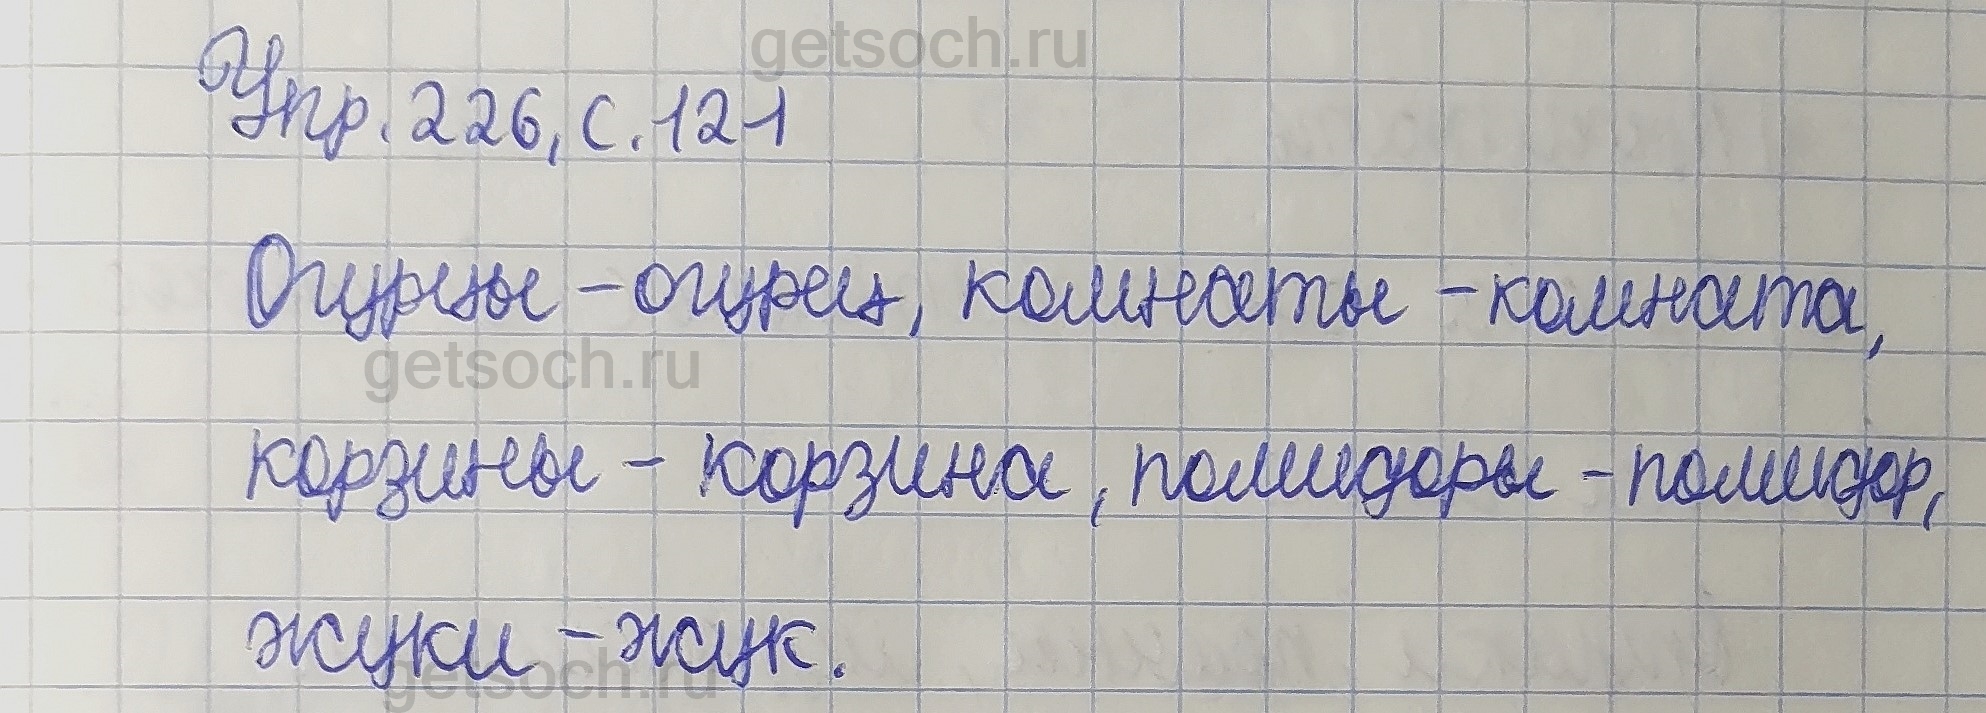 getsoch.ru
Упр. 226, с. 121
Огурцы – огурец, комнаты – комната,
getsoch.ru
корзины – корзина, помидоры – помидор,
жуки – жук.
getsoch.ru